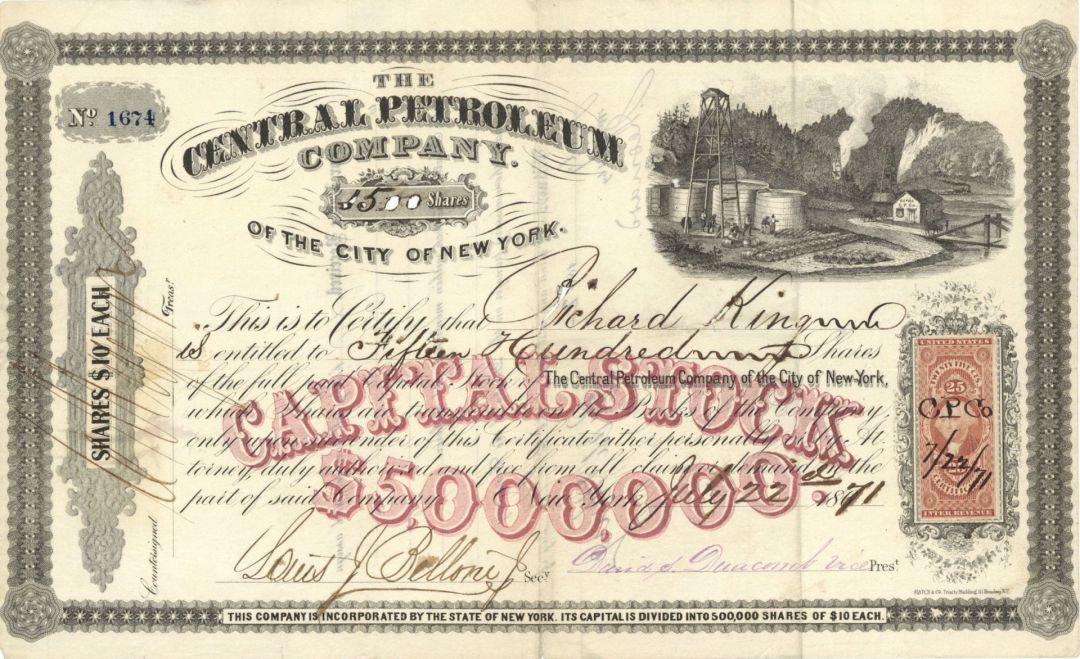 No 1674
THE
CENTRAL PETROLEUM
COMPANY.
1500 Shares
OF THE CITY OF NEW YORK.
SHARES $10 EACH
Countersigned
Treasr
This is to Certify that Richard King
is entitled to Fifteen Hundred Shares
of the full paid Capital Stock of The Central Petroleum Company of the City of New York,
which Shares are transferable on the Books of the Company,
only upon surrender of this Certificate either personally or by At
torney, duly authorized and free from all claim or demand on the
part of said Company New York July 22d 1871
CAPITAL STOCK
$5,000,000.
Louis J Belloni Jr Secy
David S. Duncomb vice Prest
UNITED STATES
TWENTY FIVE CENTS
25
C.P.Co
7/22/71
25
CERTIFICATE
INTER. REVENUE
HATCH & CO. Trinity Building, 111 Broadway N.Y.
THIS COMPANY IS INCORPORATED BY THE STATE OF NEW YORK. ITS CAPITAL IS DIVIDED INTO 500,000 SHARES OF $10 EACH.